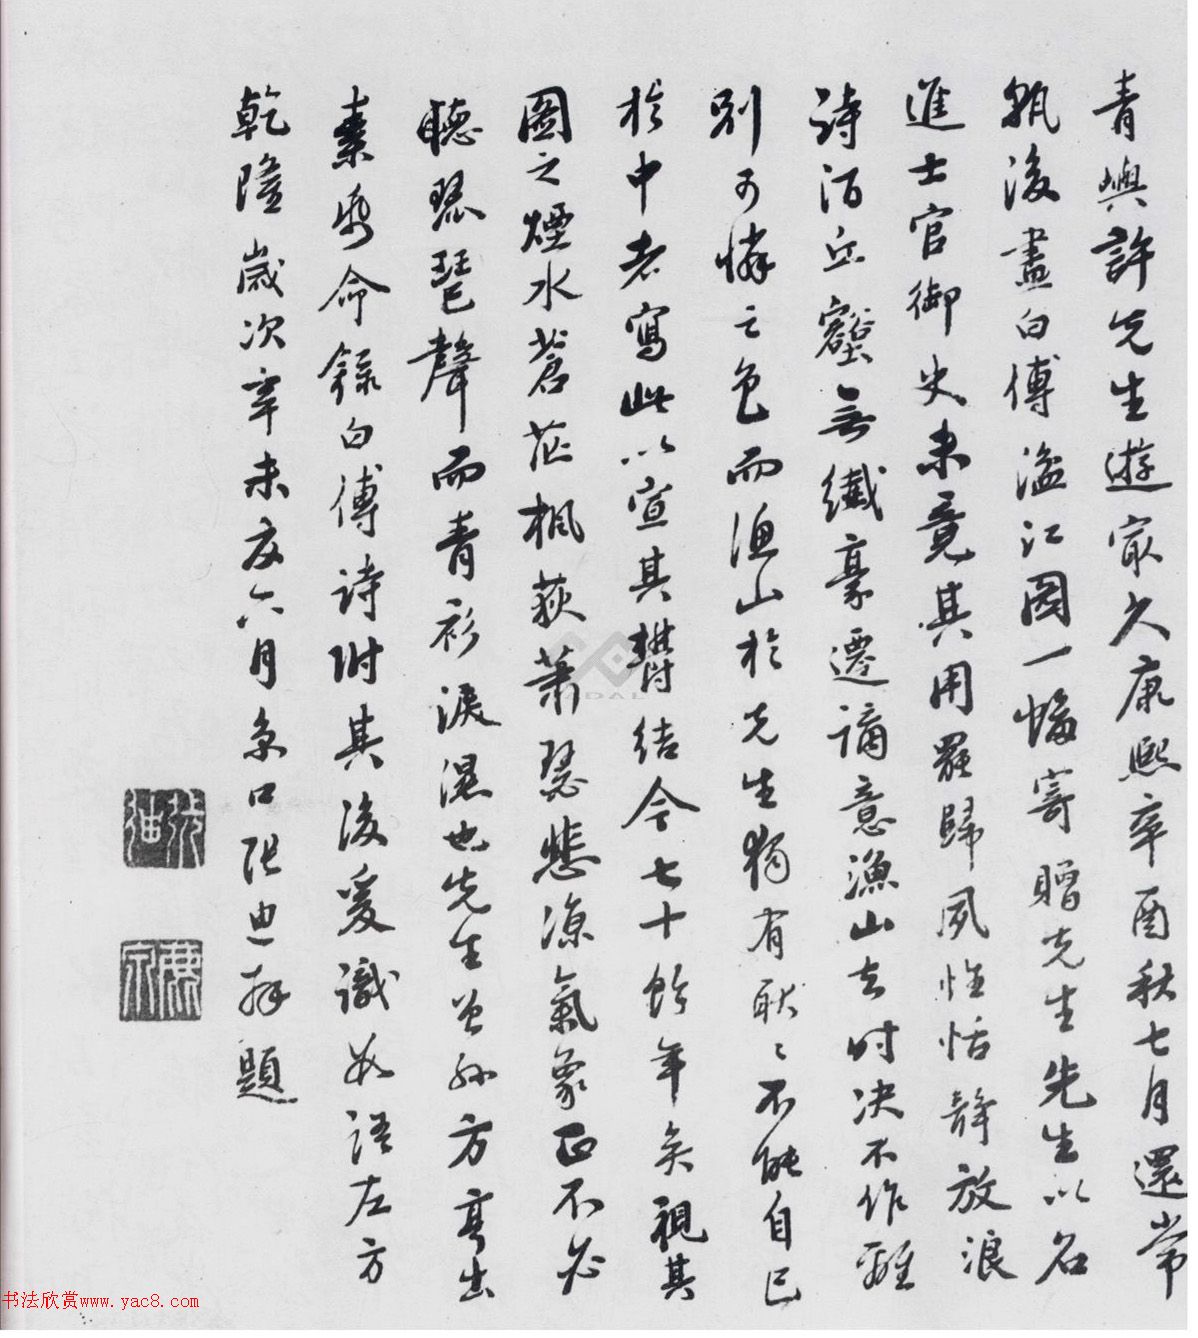 青嶼許先生遊寂久康熙辛酉秋七月還常
熟後畫白傅湓江圖一幅寄贈先生先生以名
進士官御史未竟其用罷歸夙性恬靜放浪
詩酒丘壑無纖豪遷謫意漁山去時决不作離
別可憐之色而漁山於先生獨有耿〻不能自已
於中者寫此以宣其欝結今七十餘年矣視其
圖之煙水蒼茫楓荻蕭瑟悲凉氣象正不必
聽琵琶聲而青衫淚濕也先生曾孫方亭出
素紙命錄白傅詩附其後爰識數語左方
乾隆歲次辛未夏六月京口張迪拜題
書法欣赏www.yac8.com